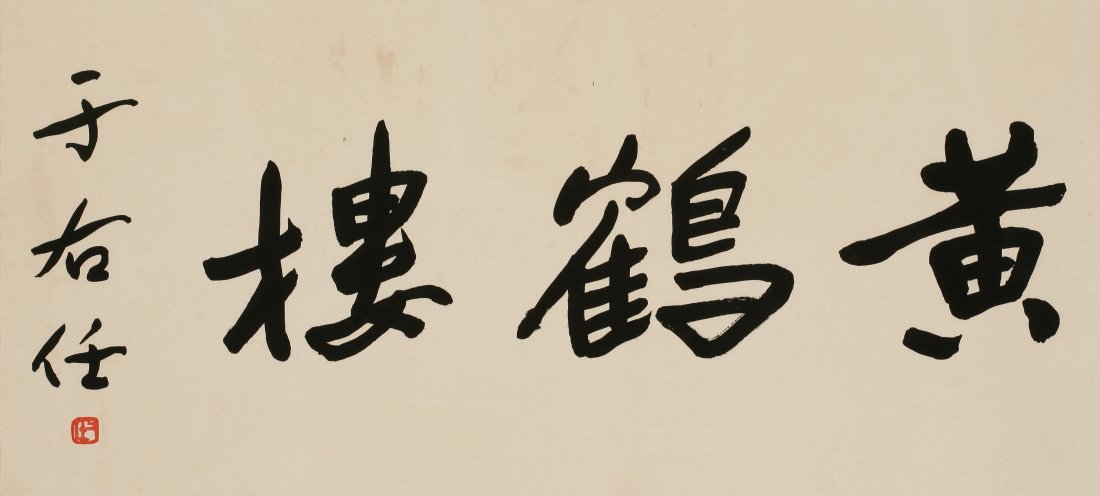 黄鶴樓
于右任